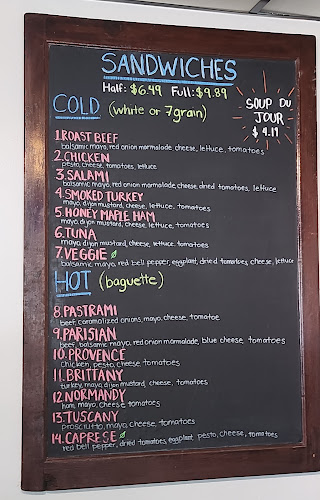 SANDWICHES
Half: $6.49 Full: $9.89
COLD (white or 7grain)
SOUP DU
JOUR
$4.19
1.ROAST BEEF
balsamic mayo, red onion marmalade, cheese, lettuce, tomatoes
2.CHICKEN
pesto, cheese, tomatoes, lettuce
3.SALAMI
balsamic mayo, red onion marmalade, cheese, dried tomatoes, lettuce
4.SMOKED TURKEY
mayo, dijon mustard, cheese, lettuce, tomatoes
5.HONEY MAPLE HAM
mayo, dijon mustard, cheese, lettuce, tomatoes
6.TUNA
mayo, dijon mustard, cheese, lettuce, tomatoes
7.VEGGIE
balsamic mayo, red bell pepper, eggplant, dried tomatoes, cheese, lettuce
HOT (baguette)
8.PASTRAMI
beef, caramolized onions, mayo, cheese, tomatoe
9.PARISIAN
beef, balsamic mayo, red onion marmalade, blue cheese, tomatoes
10.PROVENCE
Chicken, pesto, cheese, tomatoes
11.BRITTANY
turkey, mayo, dijon mustard, cheese, tomatoes
12.NORMANDY
ham, mayo, cheese, tomatoes
13.TUSCANY
prosciutto, mayo, cheese, tomatoe
14.CAPRESE
red bell pepper, dried tomatoes, eggplant, pesto, cheese, tomatoes